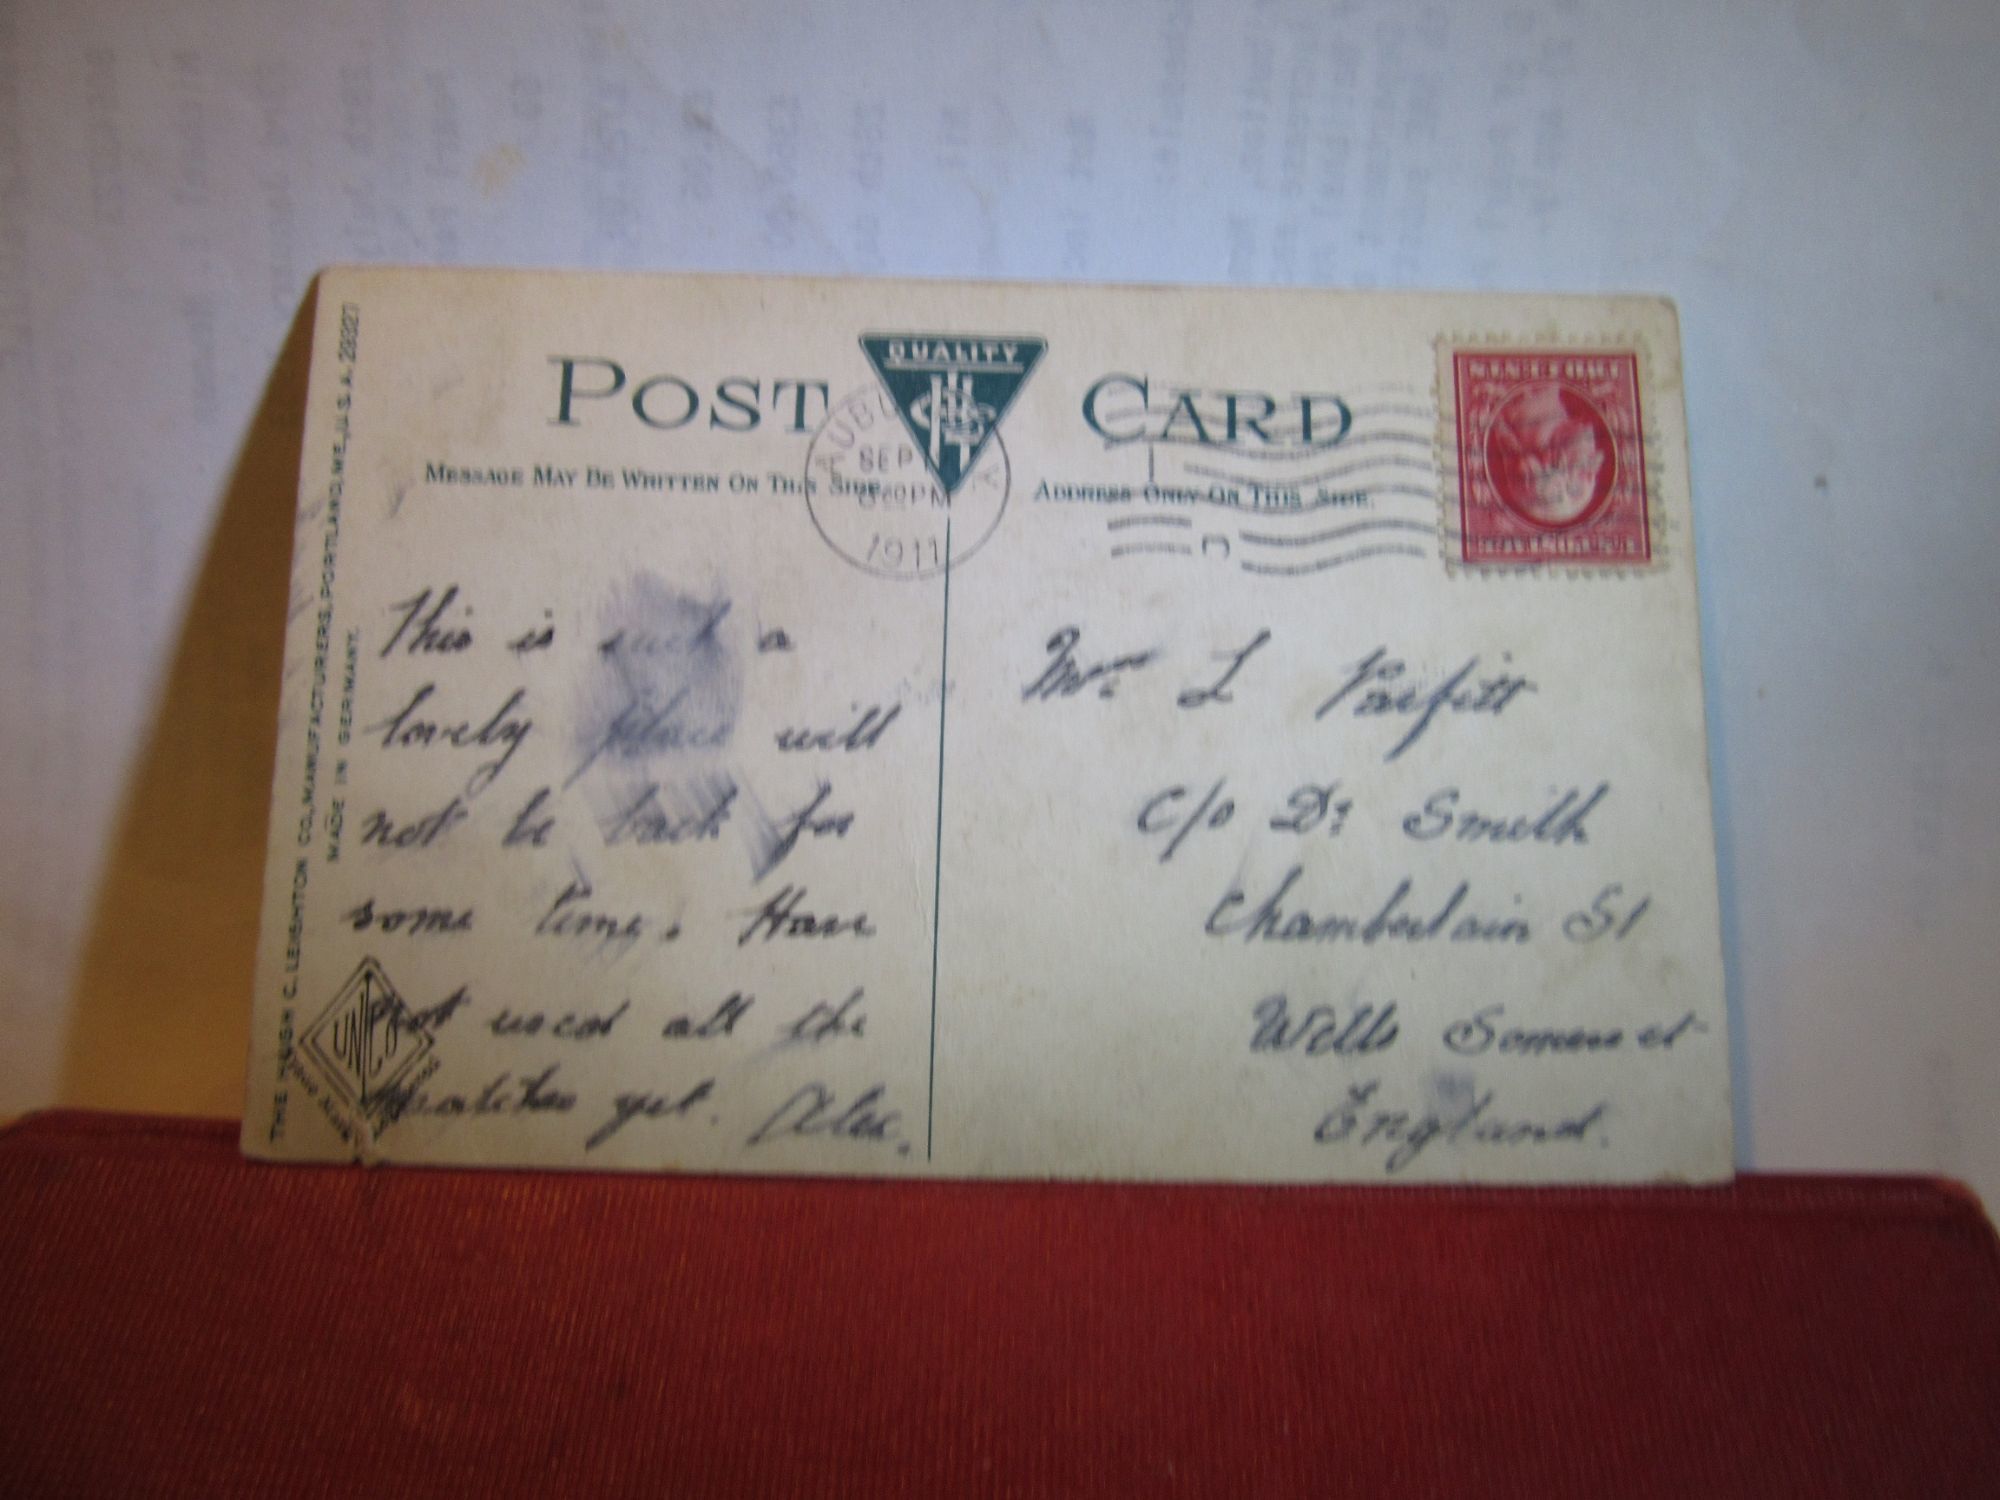 POST CARD
QUALITY
MESSAGE MAY BE WRITTEN ON THIS SIDE
ADDRESS ONLY ON THIS SIDE.
SEP
PM
1911
This is such a
lovely place will
not be back for
some time. Have
not used all the
matches yet. Alec.
Mr L Parfitt
C/o Dr Smith
Chamberlain St
Wells Somerset
England.
THE HUGH C. LEIGHTON CO., MANUFACTURERS, PORTLAND, ME., U.S.A. 29327
MADE IN GERMANY.
UNCO